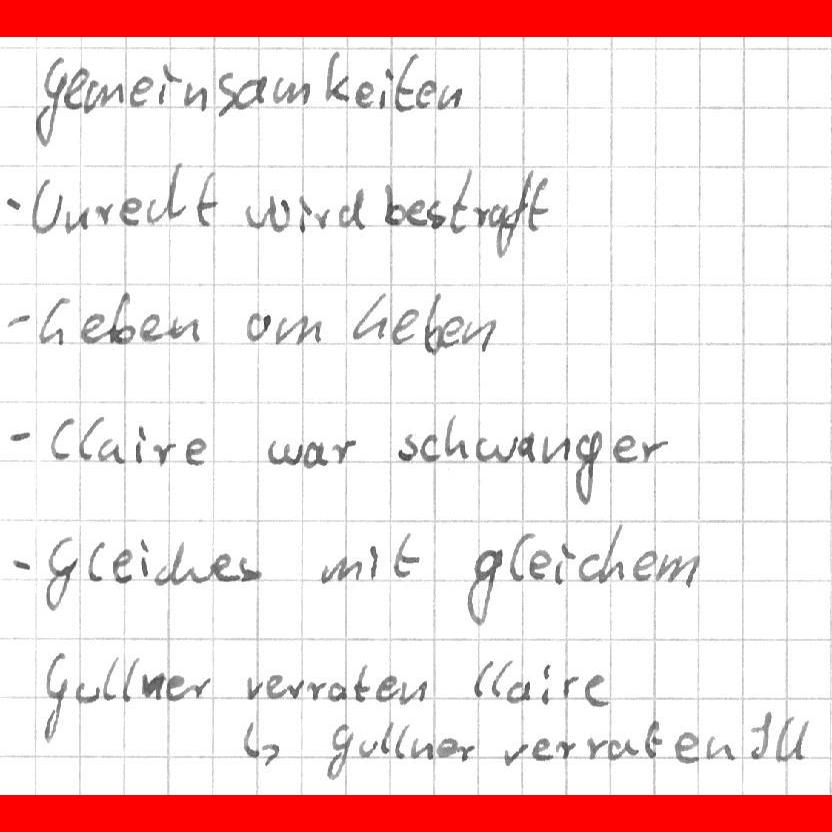 Gemeinsamkeiten
· Unrecht wird bestraft
- Leben am Leben
- Claire war schwanger
- Gleiches mit gleichem
Güllner verraten Claire
↳ Güllner verraten Ill